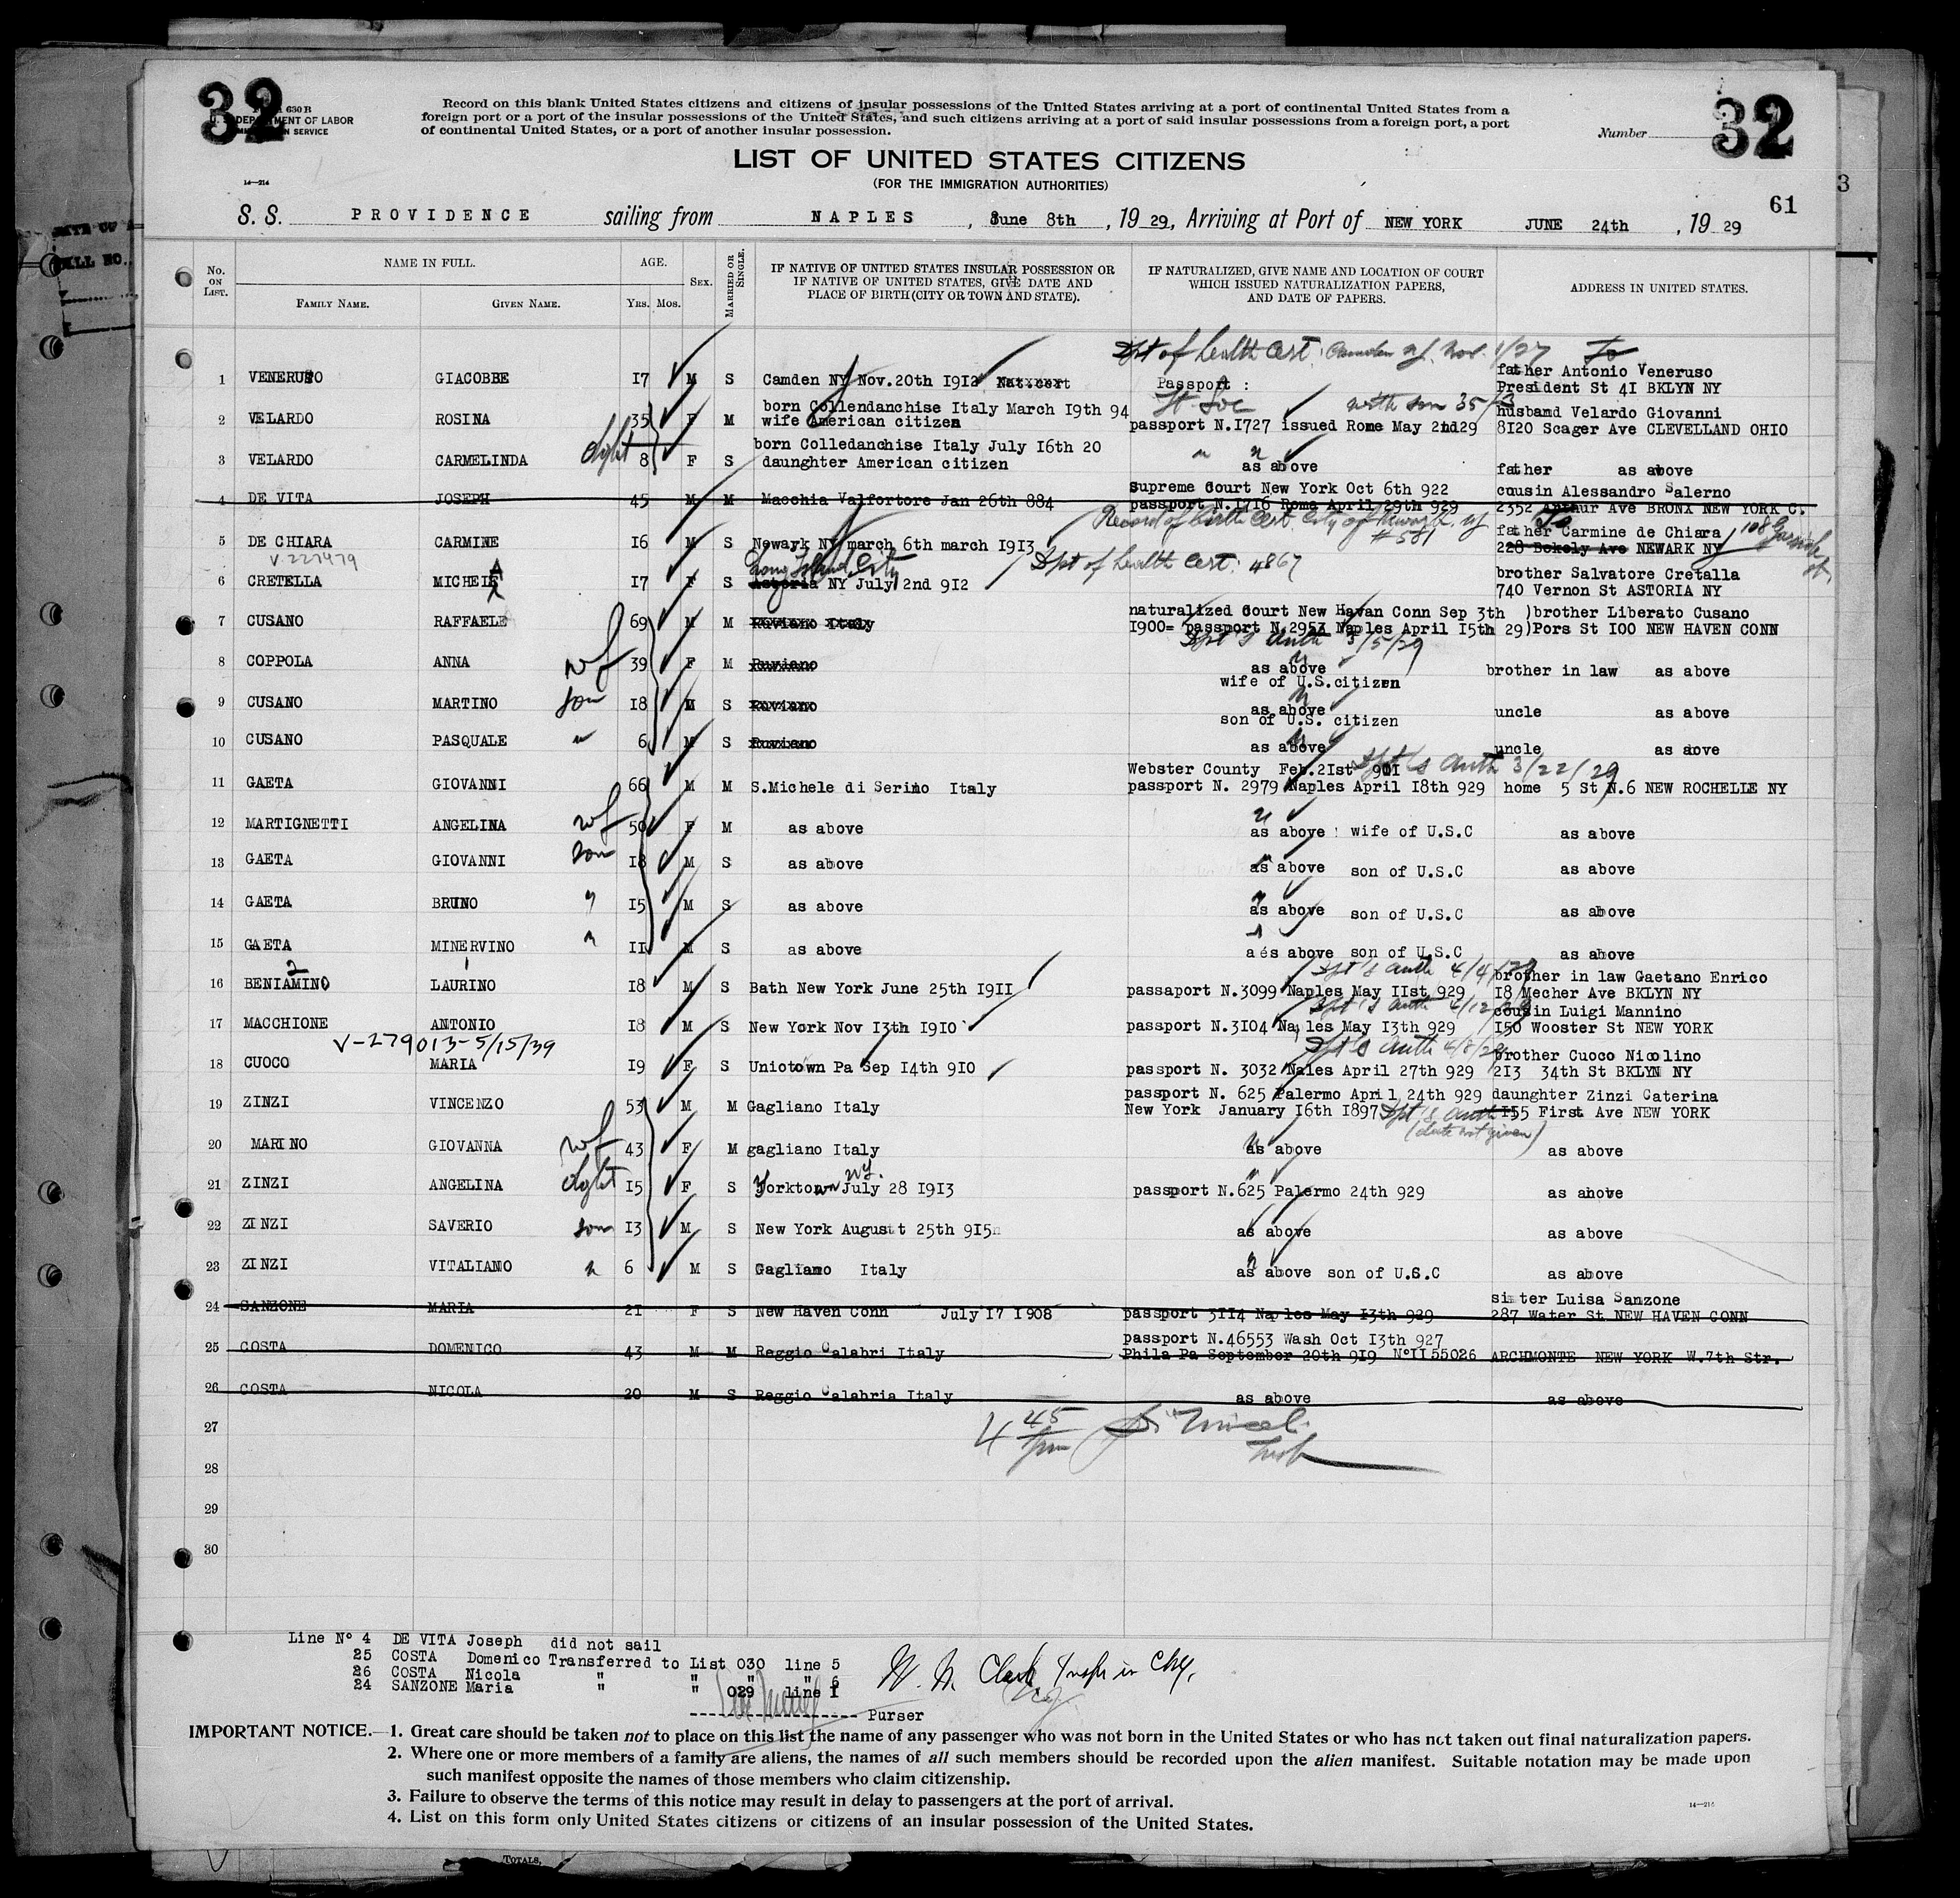 32
630 B
U. S. DEPARTMENT OF LABOR
IMMIGRATION SERVICE
Record on this blank United States citizens and citizens of insular possessions of the United States arriving at a port of continental United States from a
foreign port or a port of the insular possessions of the United States, and such citizens arriving at a port of said insular possessions from a foreign port, a port
of continental United States, or a port of another insular possession.
Number
32
LIST OF UNITED STATES CITIZENS
(FOR THE IMMIGRATION AUTHORITIES)
14—214
61
3
S. S. PROVIDENCE sailing from NAPLES, June 8th, 1929, Arriving at Port of NEW YORK JUNE 24th, 1929
No. ON LIST.
NAME IN FULL.
FAMILY NAME. GIVEN NAME.
AGE.
Yrs. Mos.
SEX.
MARRIED OR SINGLE.
IF NATIVE OF UNITED STATES INSULAR POSSESSION OR
IF NATIVE OF UNITED STATES, GIVE DATE AND
PLACE OF BIRTH (CITY OR TOWN AND STATE).
IF NATURALIZED, GIVE NAME AND LOCATION OF COURT
WHICH ISSUED NATURALIZATION PAPERS,
AND DATE OF PAPERS.
ADDRESS IN UNITED STATES.
Dpt of health Cert. Camden NJ. Nov. 1/27 To
father Antonio Veneruso
1 VENERUSO GIACOBBE 17 M S Camden NY Nov.20th 1912 Nat.cert Passport : President St 41 BKLYN NY
born Collendanchise Italy March 19th 94 with son 35/ husband Velardo Giovanni
2 VELARDO ROSINA 35 F M wife American citizen passport N.1727 issued Rome May 2nd29 8120 Scager Ave CLEVELLAND OHIO
born Colledanchise Italy July 16th 20
3 VELARDO CARMELINDA dght 8 F S daunghter American citizen as above father as above
Supreme Court New York Oct 6th 922 cousin Alessandro Salerno
4 DE VITA JOSEPH 45 M M Macchia Valfortore Jan 26th 884 passport N.1716 Roma April 29th 929 2352 Arthur Ave BRONX NEW YORK C.
Record of birth Cert. City of Newark, NJ #581 To
father Carmine de Chiara
5 DE CHIARA CARMINE 16 M S Newayk NY march 6th march 1913 228 Bokely Ave NEWARK NY 108
V-227479
Long Island City Dpt of health Cert: 4867 brother Salvatore Cretalla
6 CRETELLA MICHELE A 17 F S Astoria NY July 2nd 912 740 Vernon St ASTORIA NY
naturalized Court New Havan Conn Sep 3th )brother Liberato Cusano
7 CUSANO RAFFAELE 69 M M Ruviano Italy 1900= passport N.2953 Naples April 15th 29)Pors St 100 NEW HAVEN CONN
Dpt's Auth 3/5/29
8 COPPOLA ANNA wf 39 F M Ruviano as above brother in law as above
wife of U.S.citizen
9 CUSANO MARTINO son 18 M S Ruviano as above uncle as above
son of U.S. citizen
10 CUSANO PASQUALE " 6 M S Ruviano as above uncle as above
Webster County Feb.21st 901 Dpt's Auth 3/22/29
11 GAETA GIOVANNI 66 M M S.Michele di Serino Italy passport N. 2979 Naples April 18th 929 home 5 St N.6 NEW ROCHELLE NY
12 MARTIGNETTI ANGELINA wf 50 F M as above as above : wife of U.S.C as above
13 GAETA GIOVANNI son 18 M S as above as above son of U.S.C as above
14 GAETA BRUNO " 15 M S as above as above son of U.S.C as above
15 GAETA MINERVINO " 11 M S as above aés above son of U.S.C as above
2 1 Dpt's Auth 4/4/29 brother in law Gaetano Enrico
16 BENIAMINO LAURINO 18 M S Bath New York June 25th 1911 passaport N.3099 Naples May 11st 929 18 Mecher Ave BKLYN NY
Dpt's Auth 4/12/29 cousin Luigi Mannino
17 MACCHIONE ANTONIO 18 M S New York Nov 13th 1910 passport N.3104 Naples May 13th 929 150 Wooster St NEW YORK
V-279013-5/15/39
Dpt's Auth 4/8/29 brother Cuoco Nicolino
18 CUOCO MARIA 19 F S Uniotown Pa Sep 14th 910 passport N. 3032 Nales April 27th 929 213 34th St BKLYN NY
passport N. 625 Palermo April 24th 929 daunghter Zinzi Caterina
19 ZINZI VINCENZO 53 M M Gagliano Italy New York January 16th 1897 Dpt's Auth 155 First Ave NEW YORK
(date not given)
20 MARINO GIOVANNA wf 43 F M gagliano Italy as above as above
21 ZINZI ANGELINA dght 15 F S Yorktown NY. July 28 1913 passport N.625 Palermo 24th 929 as above
22 ZINZI SAVERIO son 13 M S New York Augustt 25th 915 as above as above
23 ZINZI VITALIANO " 6 M S Gagliano Italy as above son of U.S.C as above
sister Luisa Sanzone
24 SANZONE MARIA 21 F S New Haven Conn July 17 1908 passport 3114 Naples May 13th 929 287 Water St NEW HAVEN CONN
passport N.46553 Wash Oct 13th 927
25 COSTA DOMENICO 43 M M Reggio Calabri Italy Phila Pa September 20th 919 N°1155026 ARCHMONTE NEW YORK W.7th Str.
26 COSTA NICOLA 20 M S Reggio Calabria Italy as above as above
27
4 45 pm
28
29
30
Line N° 4 DE VITA Joseph did not sail
25 COSTA Domenico Transferred to List 030 line 5
26 COSTA Nicola " " " " 6
24 SANZONE Maria " " 029 line 1
W. N. Clark Insp in Chg.
Purser
IMPORTANT NOTICE.—1. Great care should be taken not to place on this list the name of any passenger who was not born in the United States or who has not taken out final naturalization papers.
2. Where one or more members of a family are aliens, the names of all such members should be recorded upon the alien manifest. Suitable notation may be made upon
such manifest opposite the names of those members who claim citizenship.
3. Failure to observe the terms of this notice may result in delay to passengers at the port of arrival.
4. List on this form only United States citizens or citizens of an insular possession of the United States.
14—214
TOTALS,